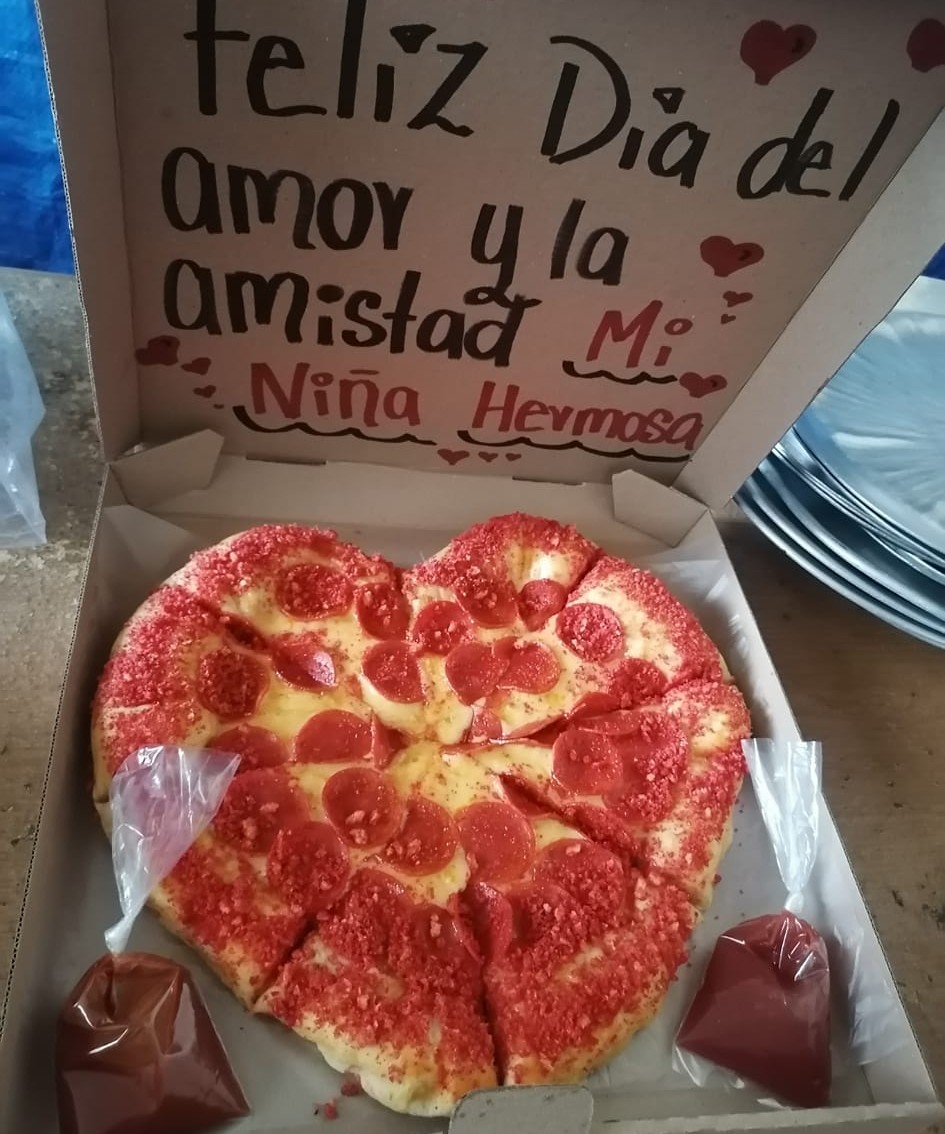 Feliz Dia del
amor y la
amistad Mi
Niña Hermosa